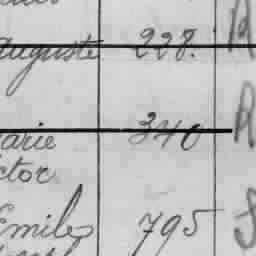 Auguste 228.
arie 340
ctor
Emile 795